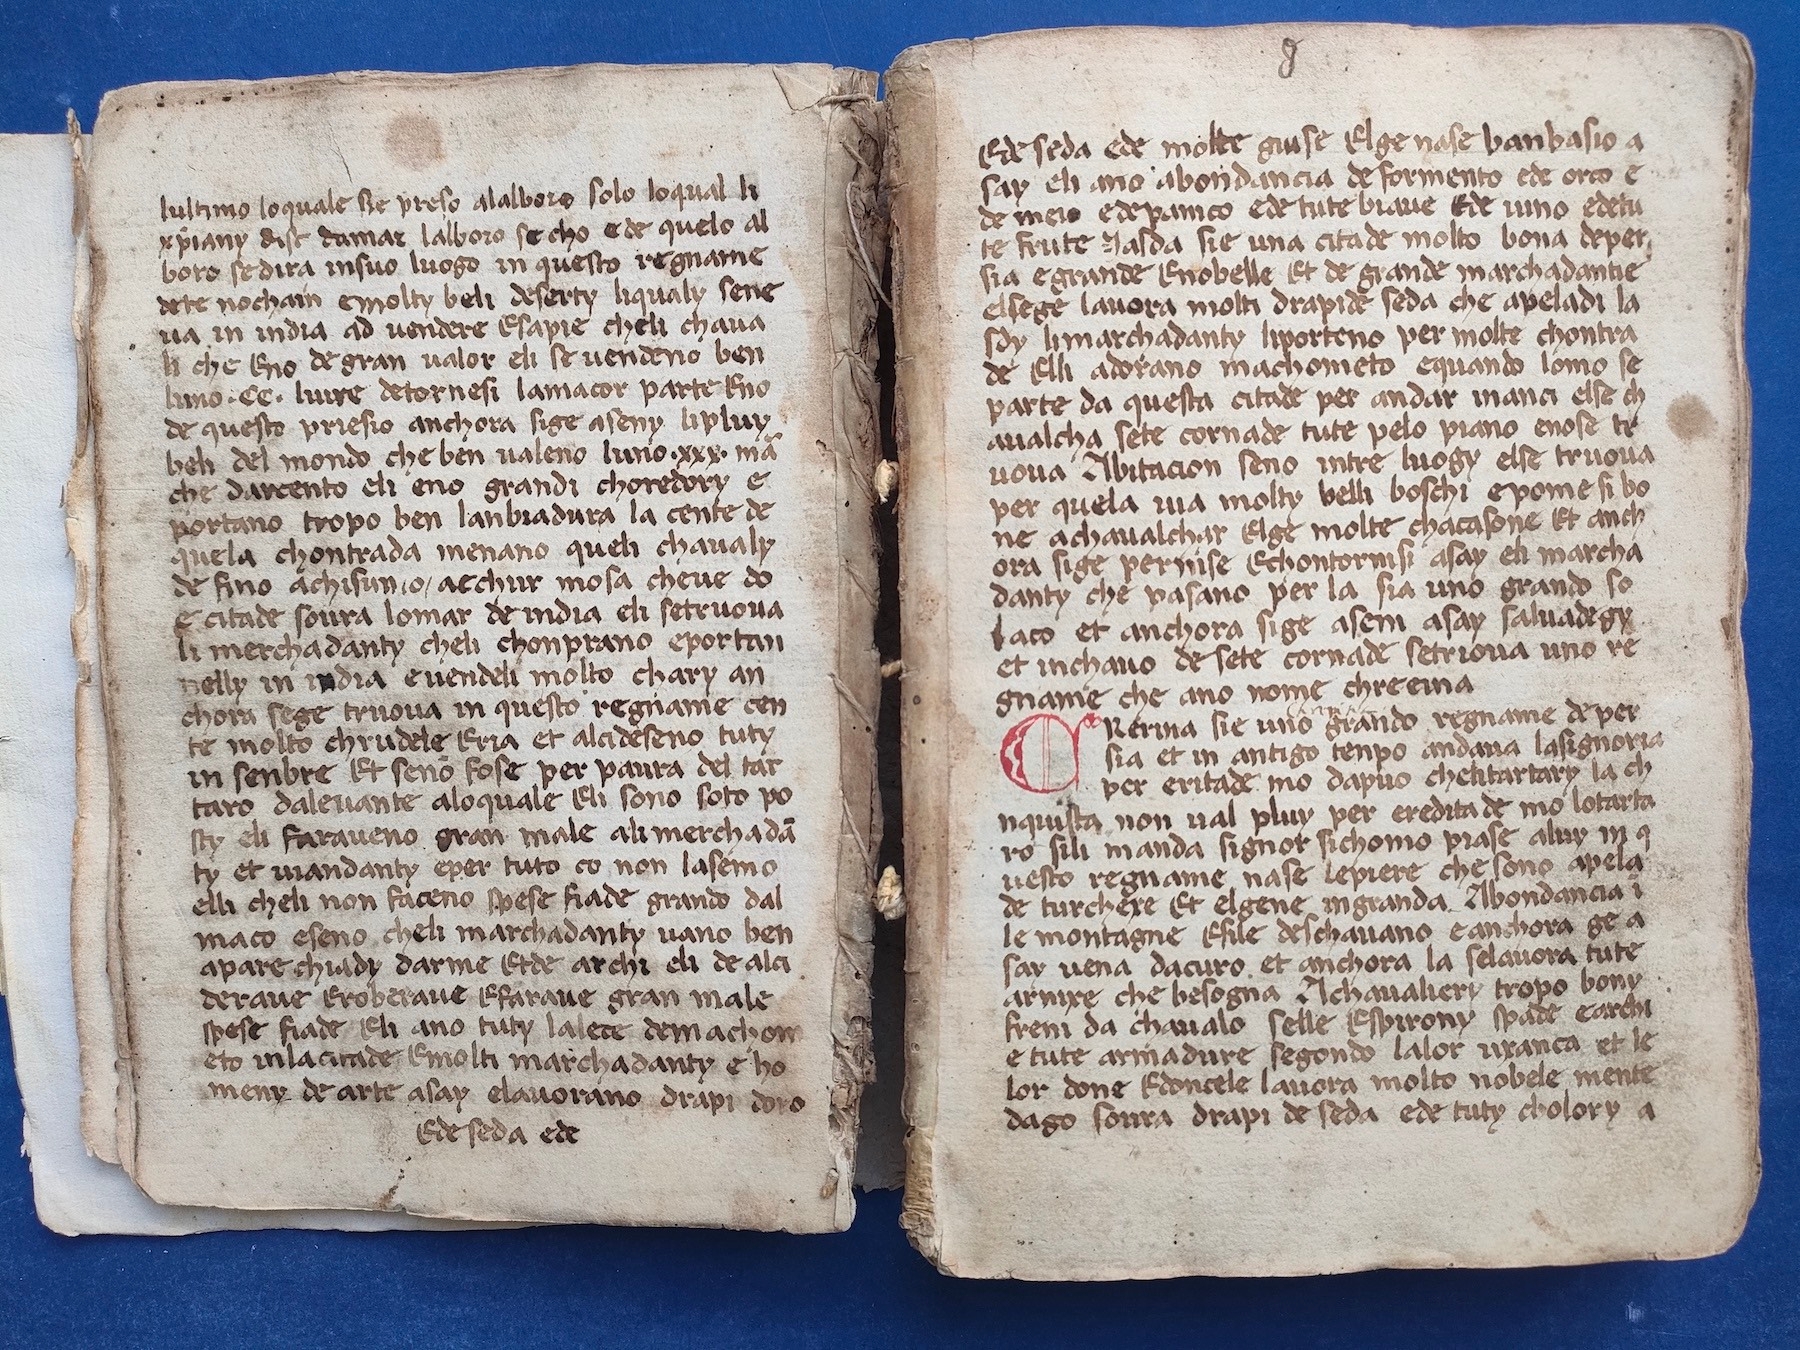 lultimo loquale sie preso alalboro solo loqual li
xpiany disc damar lalboro secho ede quelo al
boro sedira insuo luogo in questo regname
dete nochain emolty beli deserty liqualy sene
va in india ad vendere Esapie cheli chava
li che Eno de gran valor eli se vendeno ben
luno .CC. livre detornesi lamacor parte Eno
de questo priesio anchora sige aseny lipluy
beli del mondo che ben valeno luno .xxx. mā
che darcento eli eno grandi choredory e
portano tropo ben lanbiadura la cente de
quela chontrada menano queli chavaly
de fino achisi acchur mosa cheve do
e citade sovra lomar de india eli setruova
li merchadanty cheli chonprano eportan
nelly in india evendeli molto chary an
chora sege truova in questo regname cen
te molto chrudele Eria et alcideseno tuty
in senbre Et seno fose per paura del tar
taro dalevante aloquale Eli sono soto po
sty eli faraveno gran male ali merchadā
ty et viandanty eper tuto co non lasemo
elli cheli non faceno spese fiade grando dal
maco eseno cheli marchadanty vano ben
aparechiady darme Etde archi eli de alci
derave Eroberave Efarave gran male
spese fiade Eli ano tuty lalece demachom
eto inlacitade Emolti marchadanty e ho
meny de arte asay elavorano drapi doro
Ede seda ede
9
Ede seda ede molte guise Elge nase banbasio a
say eli ano abondancia de formento ede orco e
de meio edepanico ede tute biave Ede vino edetu
te frute Jasda sie una citade molto bona deper
sia egrande Enobelle Et de grande marchadantie
elsege lavora molti drapide seda che apeladi Ia
sdy limarchadanty liporteno per molte chontra
de Elli adorano machometo equando lomo se
parte da questa citade per andar inanci else ch
avalcha sete cornade tute pelo piano enose tr
vova Abitacion seno intre luogy else truova
per quela via molty belli boschi epome si bo
ne achavalchar Elge molte chacasone Et anch
ora sige pernise Echontornisi asay eli marcha
danty che pasano per la sia uno grando so
laco et anchora sige aseni asay salvadegy
et inchavo de sete cornade setriova uno re
gname che ano nome chreema
Cherina sie uno grando regname de per
sia et in antigo tenpo andava lasignoria
per eritade mo dapuo chelitartary la ch
nquista non val pluy per eredita de mo lotarta
ro sili manda signor sichomo piase aluy in q
uesto regname nase lepiere che sono apela
de turchexe Et elgene ingranda Abondancia ī
le montagne Esile deschavano eanchora ge a
say vena dacuro et anchora la selavora tute
arnixe che besogna Achavaliery tropo bony
freni da chavalo selle Espirony spade earchi
e tute armadure segondo lalor uxanca et le
lor done Edoncele lavora molto nobele mente
dago sovra drapi de seda ede tuty cholory a